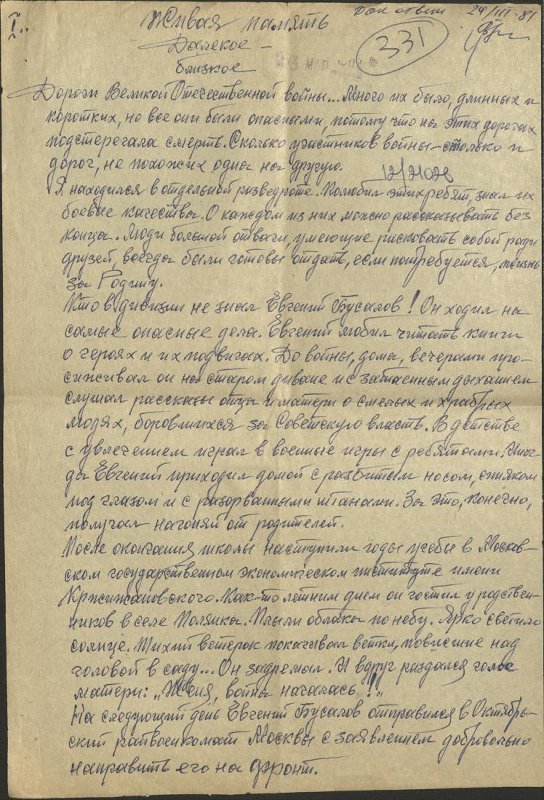 I.
Живая память
Дан ответ 24/III-81
Далекое -
близкое
331
Дороги Великой Отечественной войны... Много их было, длинных и
коротких, но все они были опасными, потому что на этих дорогах
подстерегала смерть. Сколько участников войны - столько и
дорог, не похожих одна на другую.
Я находился в отдельной разведроте. Полюбил этих ребят, знал их
боевые качества. О каждом из них можно рассказывать без
конца. Люди большой отваги, умеющие рисковать собой ради
друзей, всегда были готовы отдать, если потребуется, жизнь
за Родину.
Кто в дивизии не знал Евгения Бусалова! Он ходил на
самые опасные дела. Евгений любил читать книги
о героях и их подвигах. До войны, дома, вечерами про-
сиживал он на старом диване и с затаенным дыханием
слушал рассказы отца и матери о смелых и храбрых
людях, боровшихся за Советскую власть. В детстве
с увлечением играл в военные игры с ребятами. Иног-
да Евгений приходил домой с разбитым носом, синяком
под глазом и с разорванными штанами. За это, конечно,
получал нагоняй от родителей.
После окончания школы наступили годы учебы в Москов-
ском государственном экономическом институте имени
Кржижановского. Как-то летним днем он гостил у родствен-
ников в селе Полянка. Плыли облака по небу. Ярко светило
солнце. Тихий ветерок покачивал ветки, повисшие над
головой в саду... Он задремал. И вдруг раздался голос
матери: "Женя, война началась!"
На следующий день Евгений Бусалов отправился в Октябрь-
ский райвоенкомат Москвы с заявлением добровольно
направить его на фронт.